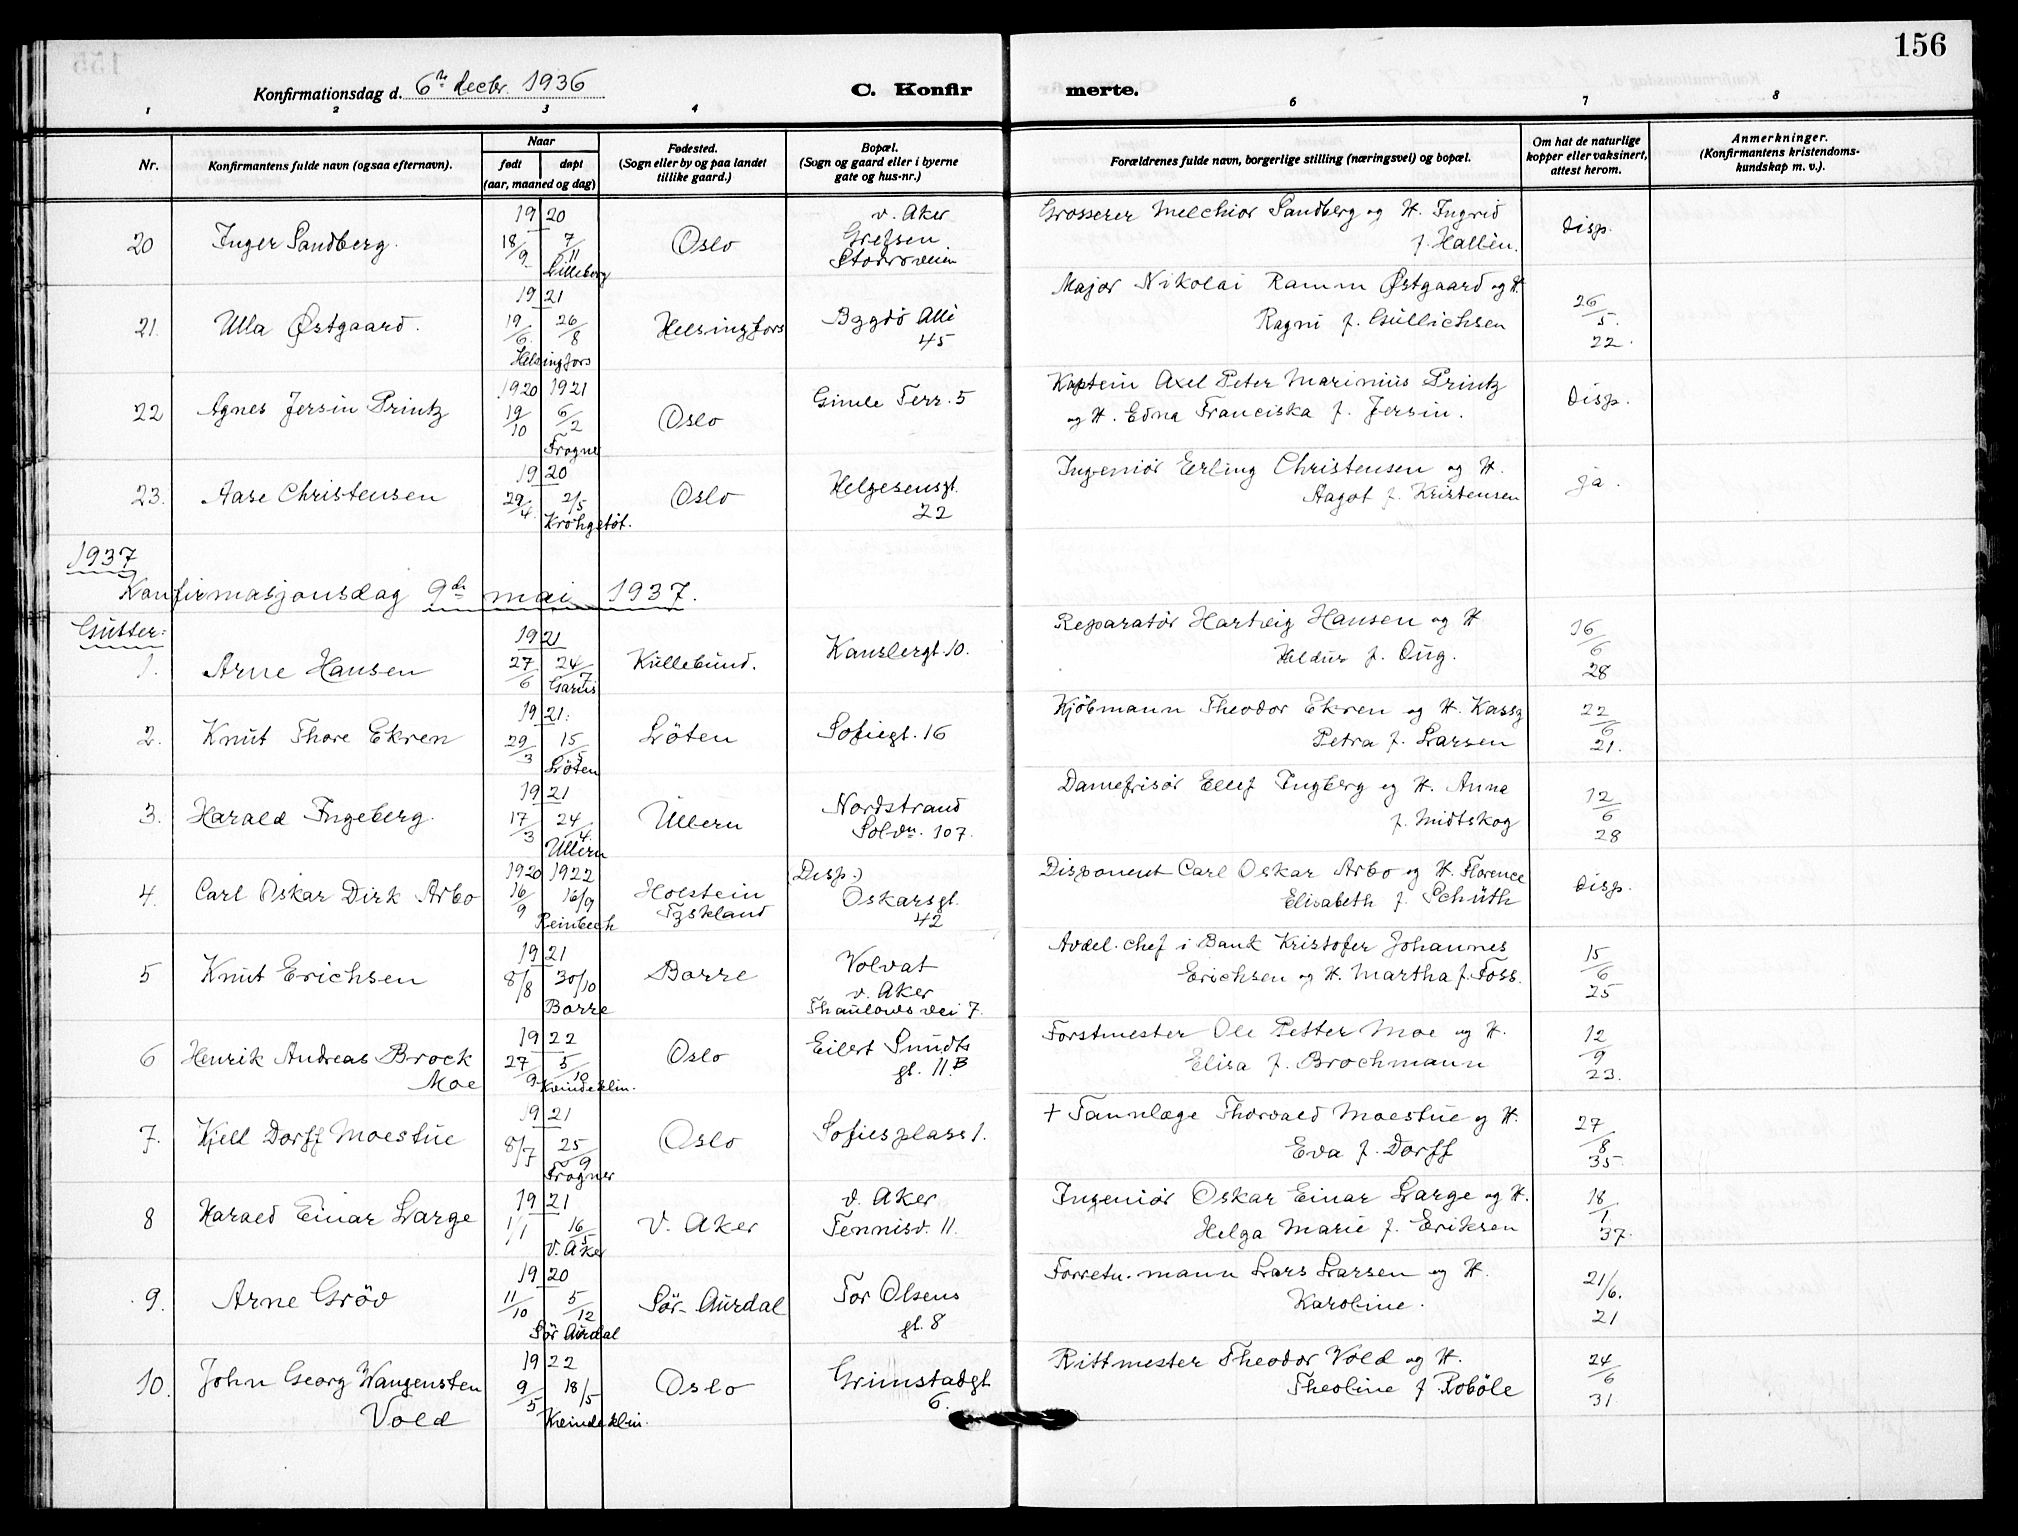 156
Konfirmationsdag d. 6te decbr. 1936
C. Konfir merte.
1 2 3 4 5 6 7 8
Nr.
Konfirmantens fulde navn (ogsaa efternavn).
Naar
født døpt
(aar, maaned og dag)
Fødested.
(Sogn eller by og paa landet
tillike gaard.)
Bopæl.
(Sogn og gaard eller i byerne
gate og hus-nr.)
Forældrenes fulde navn, borgerlige stilling (næringsvei) og bopæl.
Om hat de naturlige
kopper eller vaksinert,
attest herom.
Anmerkninger.
(Konfirmantens kristendoms-
kundskap m. v.).
20 Inger Sandberg. 1920 18/9 7/11 Lilleborg Oslo v. Aker Grefsen Storoveien Grosserer Melchior Sandberg og H. Ingrid f. Hallén. Disp.
21. Ulla Østgaard. 1921 19/6. 26/8 Helsingfors Helsingfors Bygdö Allé 45 Major Nikolai Ramm Østgaard og H Ragni f. Gullichsen 26/5. 22.
22 Agnes Jersin Printz 1920 1921 19/10 6/2 Frogner Oslo Gimle Terr. 5 Kaptein Axel Peter Marinius Printz og H. Edna Franciska f. Jersin. Disp.
23. Aase Christensen 1920 29/4. 2/5 Krohgstöt. Oslo Helgesensgt. 22 Ingeniör Erling Christensen og H. Aagot f. Kristensen ja.
1937
Konfirmasjonsdag 9de mai 1937.
Gutter:
1. Arne Hansen 1921 27/6 24/7 Garnis Kullebund. Kanslergt 10. Reparatör Hartvig Hansen og H Heldur f. Oug. 16/6 28
2. Knut Thore Ekren 1921. 29/3 15/5 Löten Löten Sofiegt. 16 Kjöbmann Theodor Ekren og H. Kassy Petra f. Larsen 22/6 21.
3. Harald Ingeberg. 1921 17/3 24/4. Ullern Ullern Nordstrand Solvn. 107. Damefrisör Ellef Ingberg og H. Anna f. Midtskog 12/6 28
4. Carl Oskar Dirk Arbo 1920 1922 16/9 16/9 Reinbech Holstein Tyskland (Disp.) Oskarsgt. 42 Disponent Carl Oskar Arbo og H. Florence Elisabeth f. Schüth Disp.
5 Knut Erichsen 1921 8/8 30/10 Borre Borre Volvat v. Aker Thaulows vei 7. Avdel. chef i Bank Kristofer Johannes Erichsen og H. Martha f. Foss. 15/6 25
6 Henrik Andreas Brock Moe 1922 27/9 5/10 Kvindeklin. Oslo Eilert Sundts gt. 11.B Forstmester Ole Petter Moe og H. Elisa f. Brochmann 12/9 23.
7. Kjell Dorff Moestue 1921 8/7 25/9 Frogner Oslo Sofies plass 1. + Tannlæge Thorvald Moestue og H. Eva f. Dorff 27/8 35
8 Harald Einar Large 1921 1/1 16/5 V. Aker V. Aker V. Aker Tennisv. 11. Ingeniör Oskar Einar Large og H. Helga Marie f. Eriksen 18/1 37.
9. Arne Gröv 1920 11/10 5/12 Sör Aurdal Sör-Aurdal Tor Olsens gt. 8 Forretn. mann Lars Larsen og H. Karoline. 21/6. 21
10. John Georg Wangensten Vold 1922 9/5 18/5 Kvindeklin. Oslo Grimstadgt 6. Rittmester Theodor Vold og H. Theoline f Roböle 24/6 31